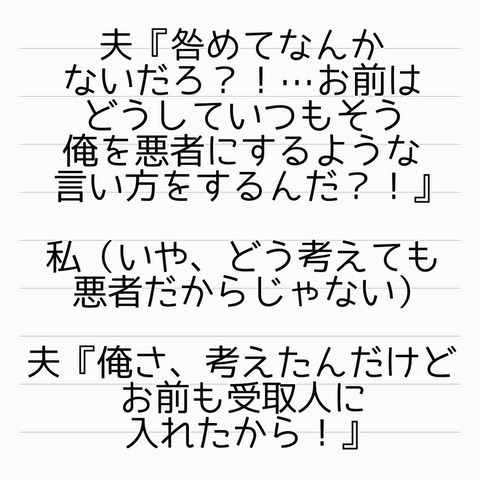 夫『咎めてなんか
ないだろ？！…お前は
どうしていつもそう
俺を悪者にするような
言い方をするんだ？！』
私（いや、どう考えても
悪者だからじゃない）
夫『俺さ、考えたんだけど
お前も受取人に
入れたから！』